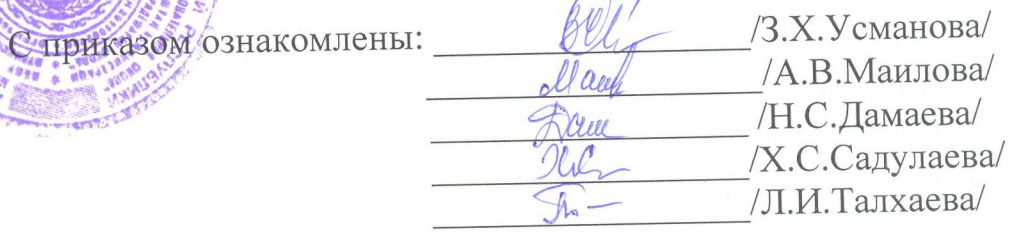 С приказом ознакомлены: /З.Х.Усманова/
/А.В.Маилова/
/Н.С.Дамаева/
/Х.С.Садулаева/
/Л.И.Талхаева/